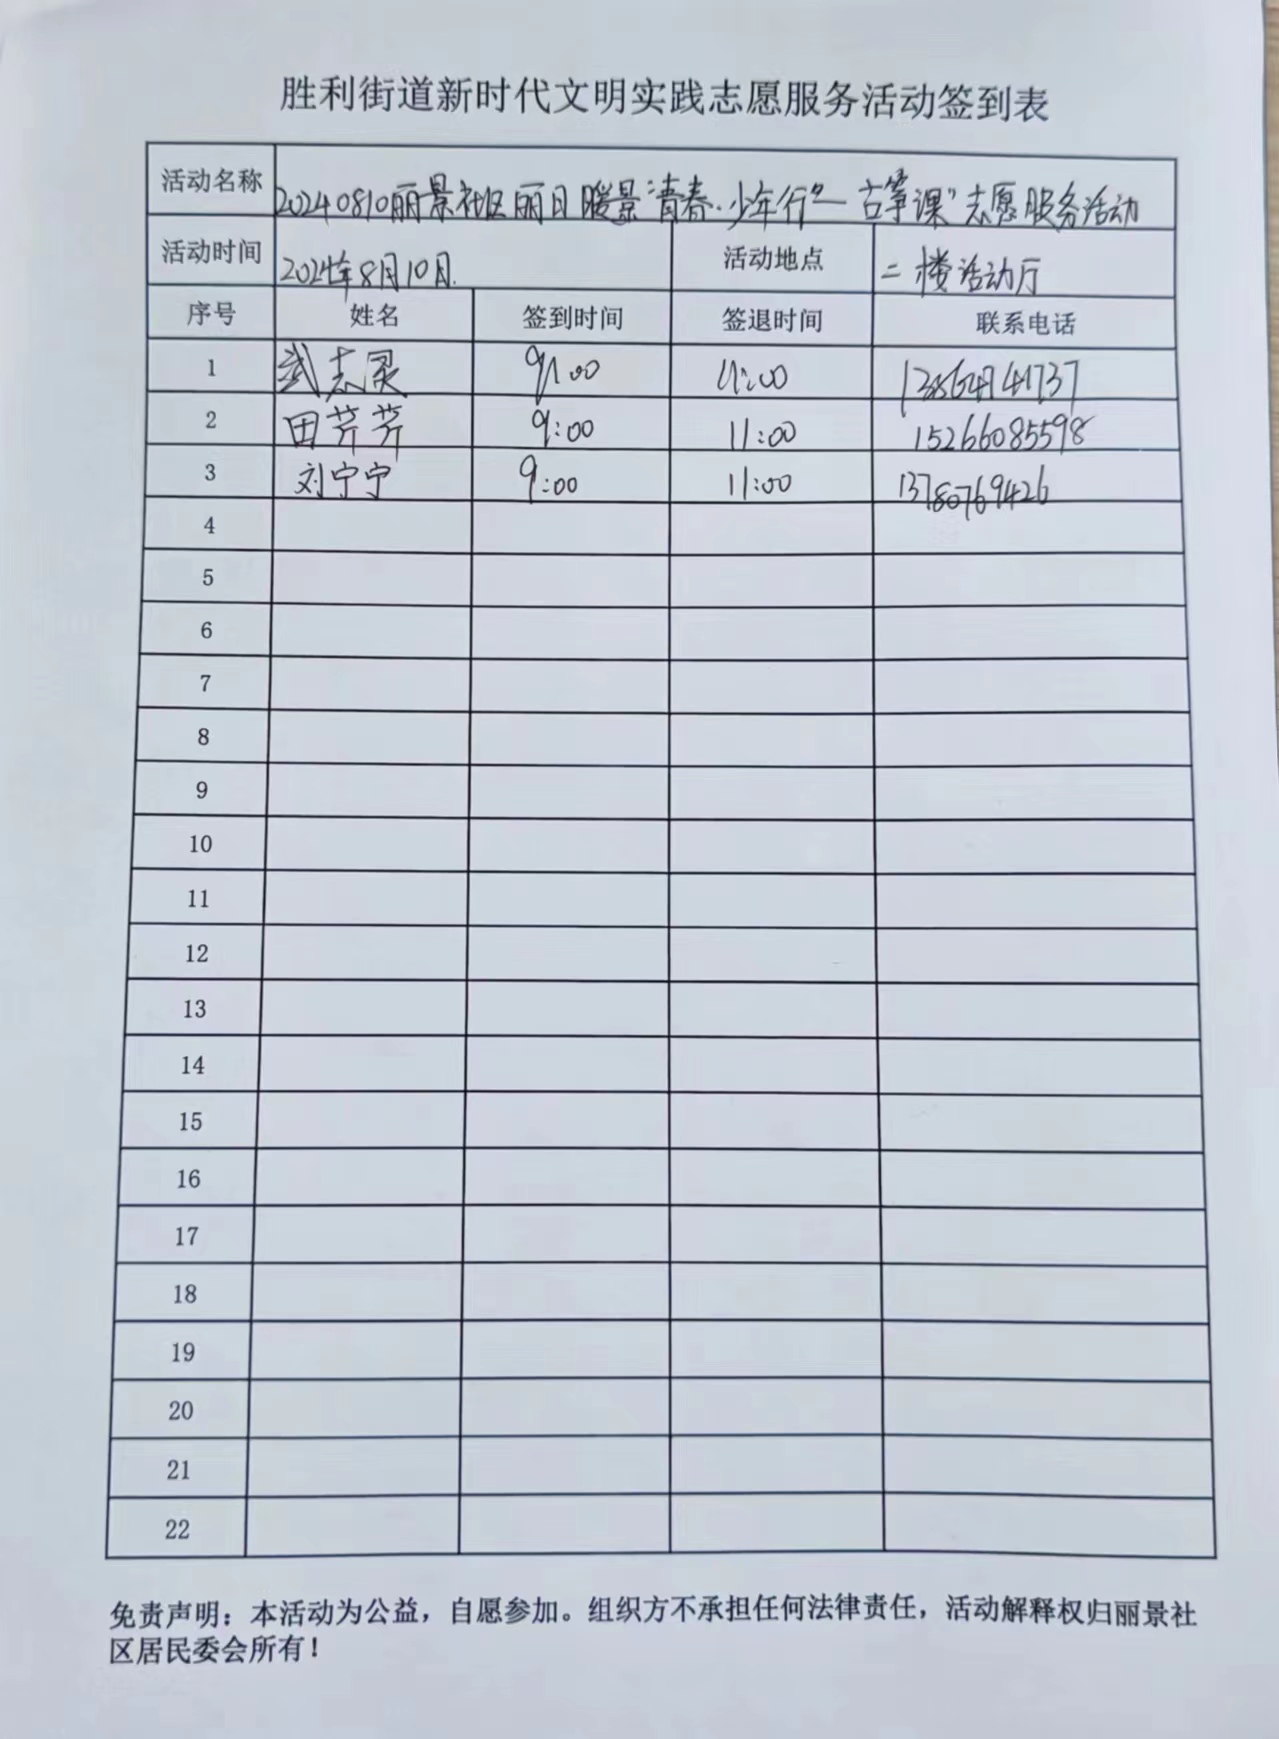 胜利街道新时代文明实践志愿服务活动签到表
活动名称 20240810丽景社区丽日暖景"青春·少年行"—古筝课"志愿服务活动
活动时间 2024年8月10日. 活动地点 二楼活动厅
序号 姓名 签到时间 签退时间 联系电话
1 武志 9:00 11:00
2 田芹芹 9:00 11:00 15266085598
3 刘宁宁 9:00 11:00 13780769426
4
5
6
7
8
9
10
11
12
13
14
15
16
17
18
19
20
21
22
免责声明：本活动为公益，自愿参加。组织方不承担任何法律责任，活动解释权归丽景社
区居民委会所有！